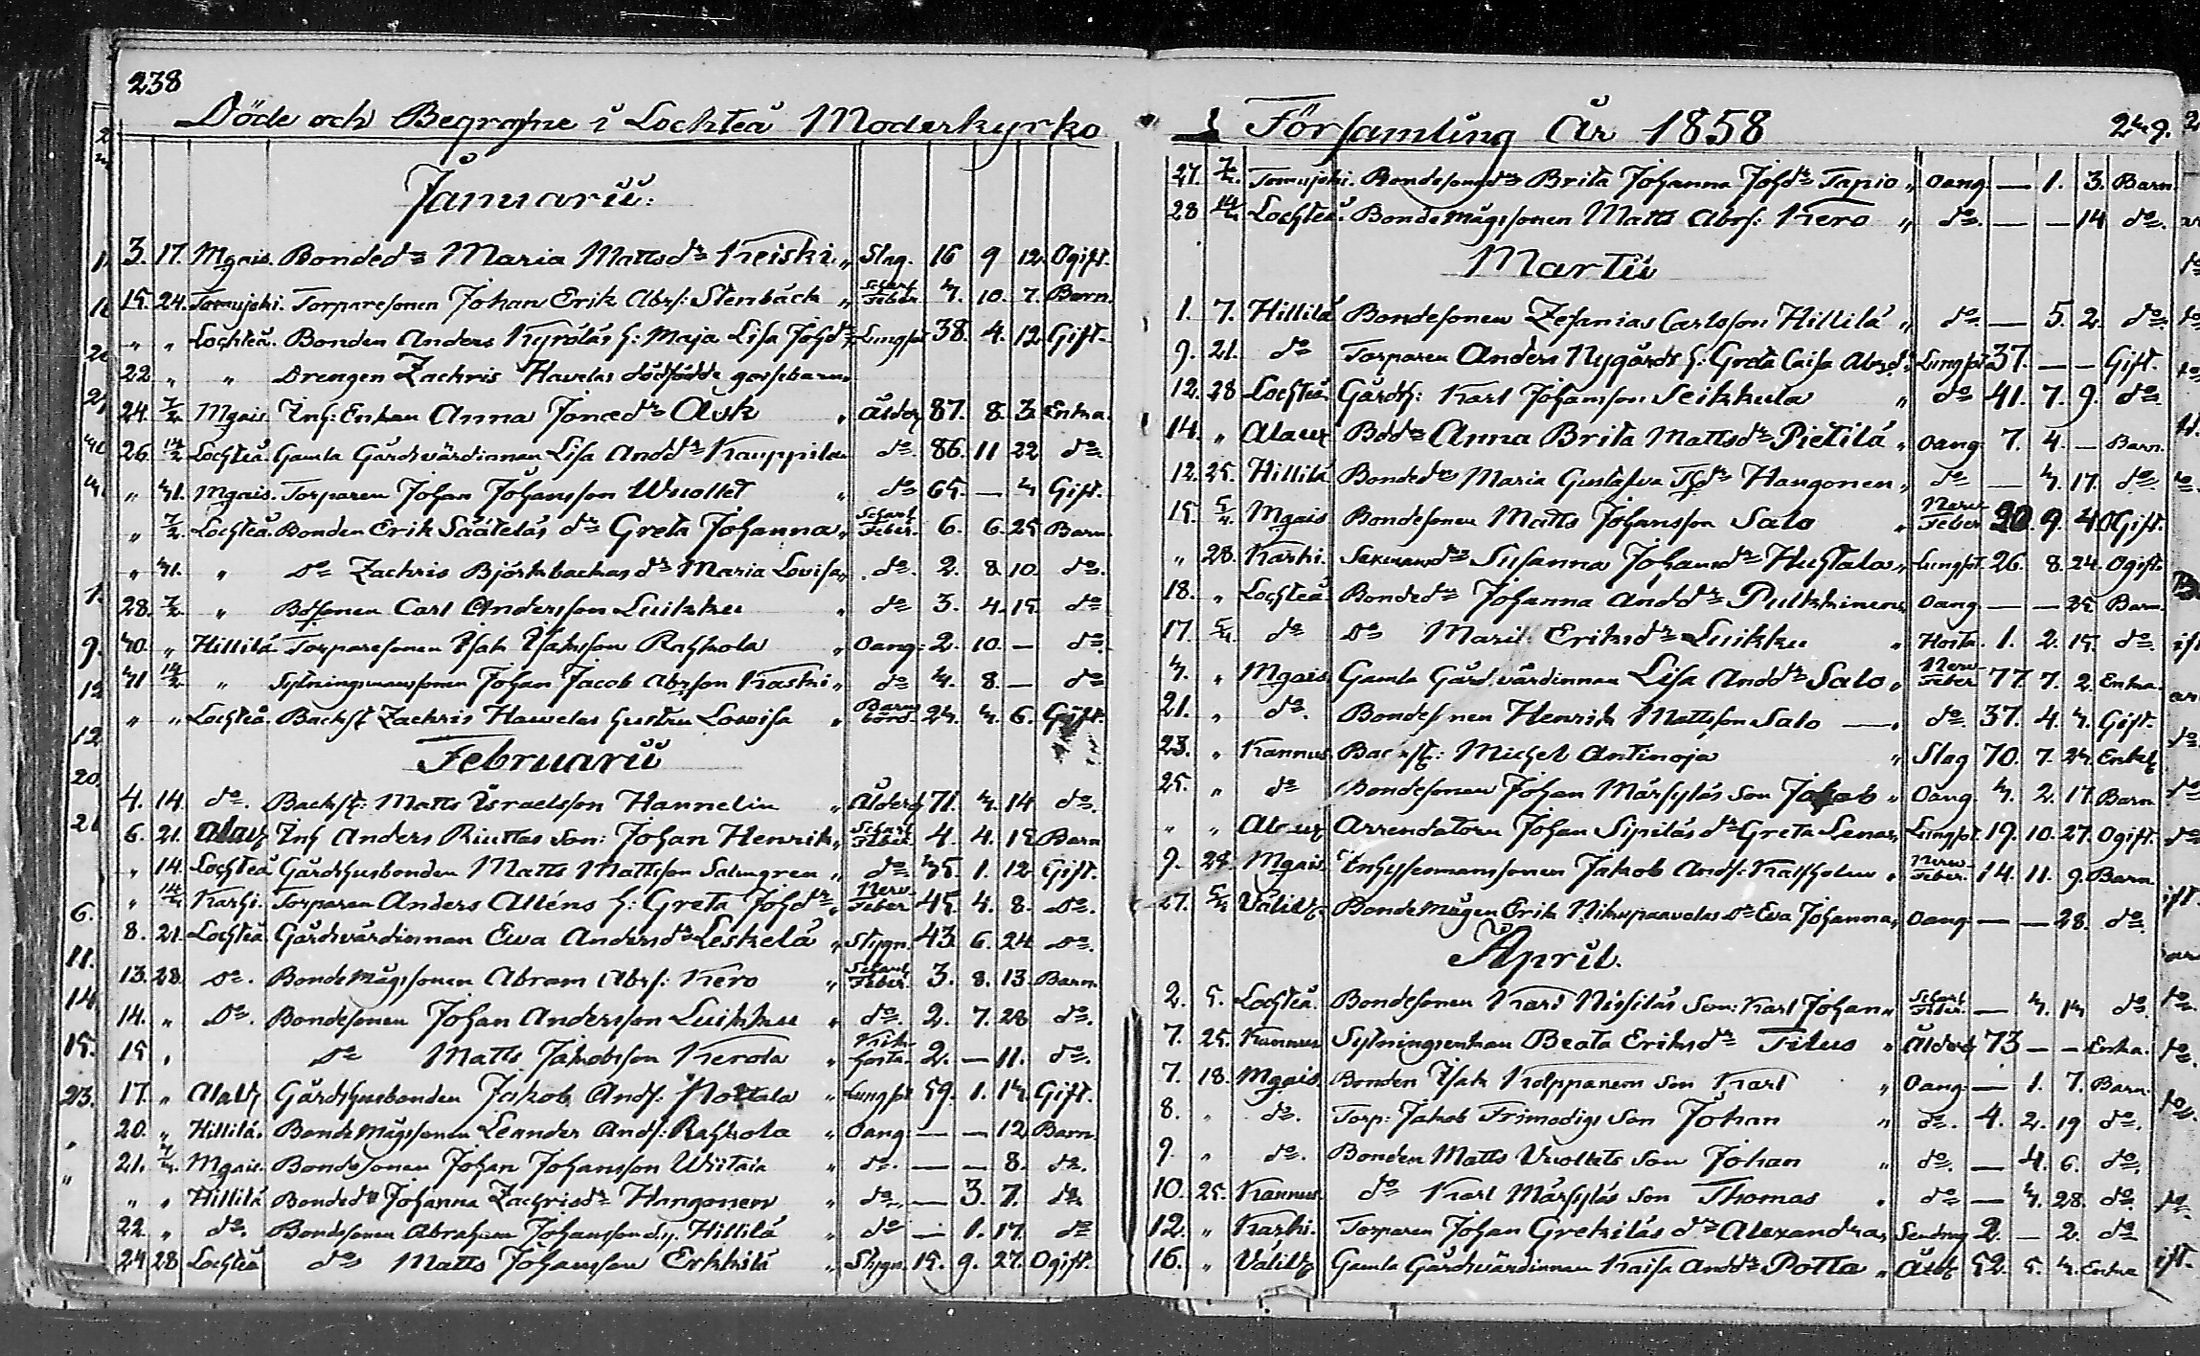 238
Döde och Begrafne i Lochteå Moderkyrko
Januarii:
3. 17. Mgais. Bonded:r Maria Mattsd:r Keiski " Slag. 16 9 12. Ogift.
15. 24. Tomujoki. Torparesonen Johan Erik Abrs: Stenbäck " Scharl Feber. 4. 10. 7. Barn.
" " Lochteå. Bonden Anders Kyröläs h: Maja Lisa Johd:r Lungsot 38. 4. 12. Gift.
22. " " Drengen Zachris Havelas dödfödde gossebarn
24. 7/2 Mgais Inh: Enkan Anna Jonæd:r Ask " Ålder 87. 8. 3. Enka.
26. 14/2 Lochteå. Gamla Gårdsvärdinnan Lisa Andd:r Kauppila d:o 86. 11 22 d:o
" 31. Mgais. Torparen Johan Johansson Wuollet " d:o 65. — 4 Gift.
" 7/2 Lochteå Bonden Erik Sääteläs d:r Greta Johanna " Scharl Feber. 6. 6. 25 Barn
" 31. " D:o Zachris Björkbackas d:r Maria Lovisa " d:o 2. 8 10. d:o.
28. 7/2 " Bdsonen Carl Andersson Luikku " d:o 3. 4. 15. d:o
30. " Hillilä Torparesonen Isak Isaksson Rahkola " Oang: 2. 10. — d:o.
31 14/2 " Sytningsmanssonen Johan Jacob Abrson Kaski " d:o 4. 8. — d:o
" " Lochteå. Backst Zachris Hawelas hustru Lowisa " Barn börd. 24. 4. 6. Gift.
Februarii
4. 14. d:o. Backst: Matts Israelsson Hannelin " Ålderd 71. 4. 14 d:o.
6. 21. Alavz Inh Anders Riuttas son: Johan Henrik " Scharl Feber. 4. 4. 15 Barn
" 14. Lochteå Gårdshusbonden Matts Mattsson Salmgren " d:o 35. 1. 12 Gift.
" 14/3 Karhi. Torparen Anders Alléns h: Greta Johd:r " Nerv Feber 45. 4. 8. D:o.
8. 21. Lochteå Gårdsvärdinnan Ewa Andersd:r Leskelä " Stygn. 43 6. 24 D:o.
13. 28. D:o. Bonde Mågssonen Abram Abrs: Kero " Scharl Feber. 3. 8. 13. Barn.
14. " D:o. Bondesonen Johan Andersson Luikku " d:o. 2. 7. 28 d:o.
15 " D:o Matts Jakobsson Kerola " Kik-hosta. 2. — 11. d:o.
17. " Alavz Gårdshusbonden Jakob Ands: Nottala " Lungsot 59. 1. 14. Gift.
20. " Hillilä. Bonde Mågssonen Leander Ands: Rahkola " Oang: — — 12 Barn.
21. 7/3. Mgais. Bondesonen Johan Johansson Wiitala " d:o. — — 8. d:o.
" " Hillilä Bonded:r Johanna Zachrisd:r Hangonen " d:o — 3. 7. d:o
22. " d:o. Bondsonen Abraham Johansson d.y. Hillilä " d:o — 1. 17. d:o
24 28 Lochteå d:o Matts Johansson Erkkilä " Stygn. 15. 9. 27. Ogift.
Församling År 1858
249.
27. 7/3. Tomujoki. Bondesonsd:r Brita Johanna Johd:r Tapio " Oang. — 1. 3. Barn.
28 14/3 Lochteå. Bonde Mågssonen Matts Abrs: Kero " d:o. — — 14 d:o.
Martii
1. 7. Hillilä Bondesonen Zefanias Carlsson Hillilä " d:o. — 5. 2. d:o.
9. 21. d:o Torparen Anders Nygårds h: Greta Caisa Abrsd:r Lungsot 37. — — Gift.
12. 28 Lochteå. Gårdsh: Karl Johansson Seikkula " d:o 41. 7. 9. d:o
14. " Alavz Bdd:r Anna Brita Mattsd:r Pietilä " Oang 7. 4. — Barn.
12. 25. Hillilä Bonded:r Maria Gustafva Thd:r Hangonen " d:o — 4. 17. d:o.
15. 5/4. Mgais Bondesonen Matts Johansson Salo " Nerv Feber 20. 9. 4 Ogift.
" 28. Karhi. Susanna Johansd:r Huhtala " Lungsot. 26. 8. 24. Ogift.
18. " Lochteå Bonded:r Johanna Andd:r Pulkkinen " Oang — — 25. Barn.
17. 5/4 d:o D:o Maria Eriksd:r Luikku " Hosta. 1. 2. 15. d:o.
4. " Mgais Gamla Gårdsvärdinnan Lisa Andd:r Salo " Nerv Feber 77. 7. 2. Enka.
21. " d:o. Bondesonen Henrik Mattsson Salo — " d:o. 37. 4. 4. Gift.
23. " Kannus Backst: Michel Antinoja " Slag 70. 7. 24. Enkl
25. " d:o Bondesonen Johan Märsyläs son Jakob " Oang 4. 2. 17. Barn
" " Alavz Arrendatorn Johan Sipiläs d:r Greta Lena " Lungsot. 19. 10. 27. Ogift.
9. 28. Mgais Inhysesmanssonen Jakob Ands: " Nerv Feber. 14. 11. 9. Barn.
27. 5/4 Välivz. Bonde Mågen Erik Nikupaavolas D:r Eva Johanna " Oang — — 28. d:o.
April.
2. 5. Lochteå. Bondesonen Karl Nissiläs Son: Karl Johan " Scharl Feber. — 4. 14 d:o.
7. 25. Kannus Sytningsenkan Beata Eriksd:r Titus " Ålderd 73 — — Enka.
7. 18. Mgais Bonden Isak Kolppanens son Karl " Oang — 1. 7. Barn
8. " d:o. Torp: Jakob Frimodigs Son Johan " d:o. 4. 2. 19 d:o.
9. " d:o. Bonden Matts Vuollets Son Johan " d:o. — 4. 6. d:o.
10. 25. Kannus d:o Karl Märsyläs Son Thomas " d:o — 4. 28. d:o.
12. " Karhi. Torparen Johan Grekiläs d:r Alexandra " 2. — 2. d:o
16. " Välivz Gamla Gårdsvärdinnan Kaisa Andd:r Potta " Åld 52. 5. 4. Enka